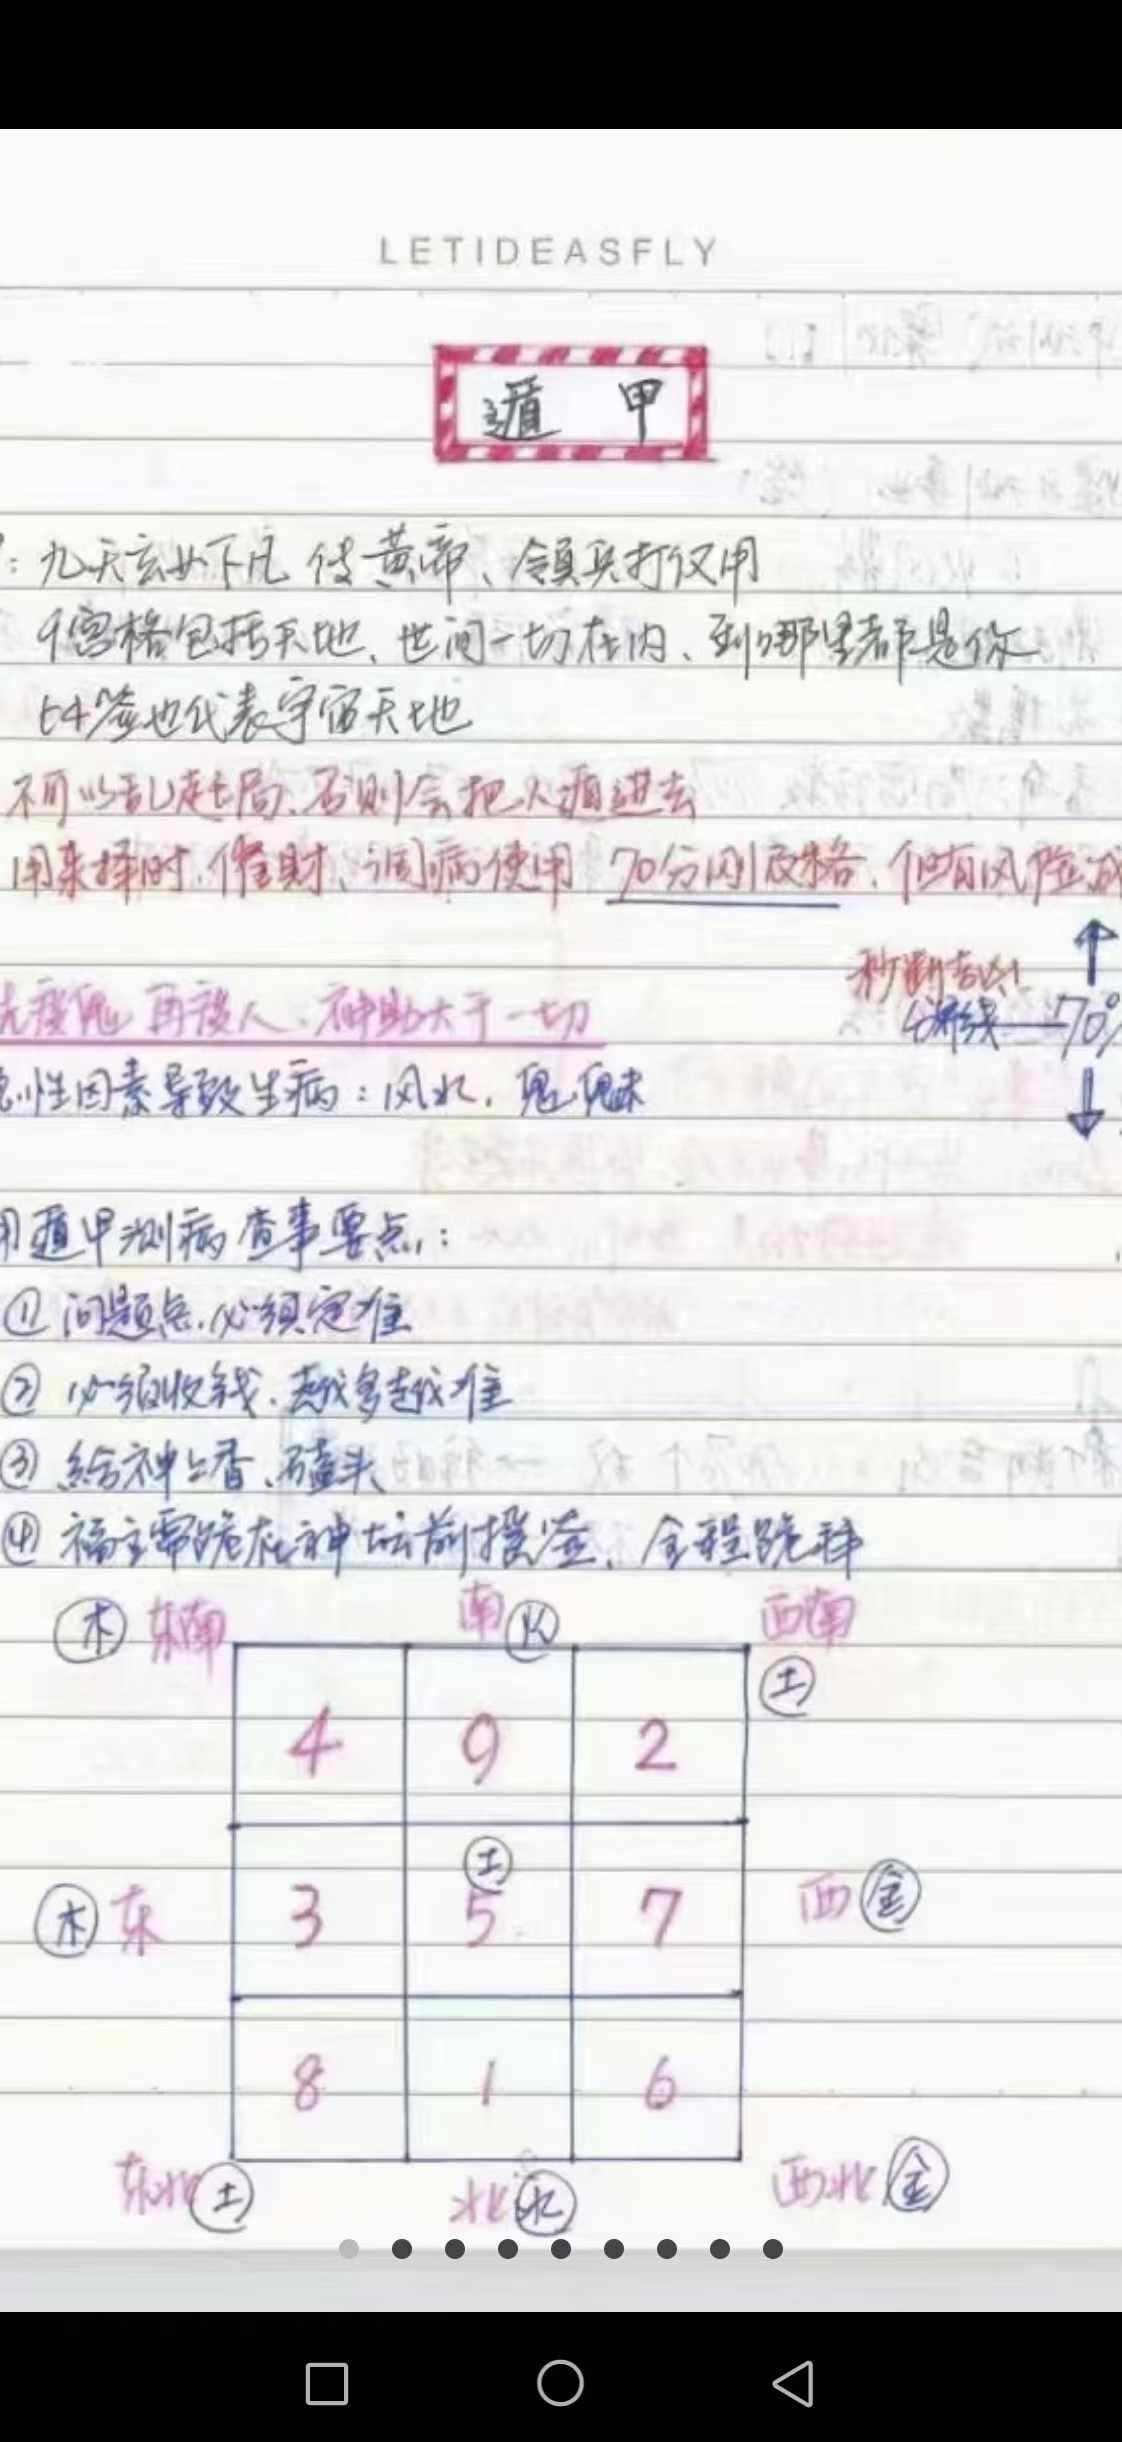 LETIDEASFLY
遁 甲
：九天玄女下凡 传黄帝、领兵打仗用
9宫格包括天地、世间一切在内、到哪里都是你
64签也代表宇宙天地
不可以乱起局、否则会把人遁进去
用来择时、催财、调病使用 70分刚及格、但有风险
秒断吉凶
再渡人、神助大于一切
分界线 70%
性因素导致生病：风水、鬼魅
用遁甲测病查事要点：
① 问题点、必须定准
② 必须收钱、越多越准
③ 给神上香、磕头
④ 福主需跪在神坛前摇签、全程跪拜
木 东南 南 火 西南
土
4 9 2
土
木 东 3 5 7 西 金
8 1 6
东北 土 北 水 西北 金